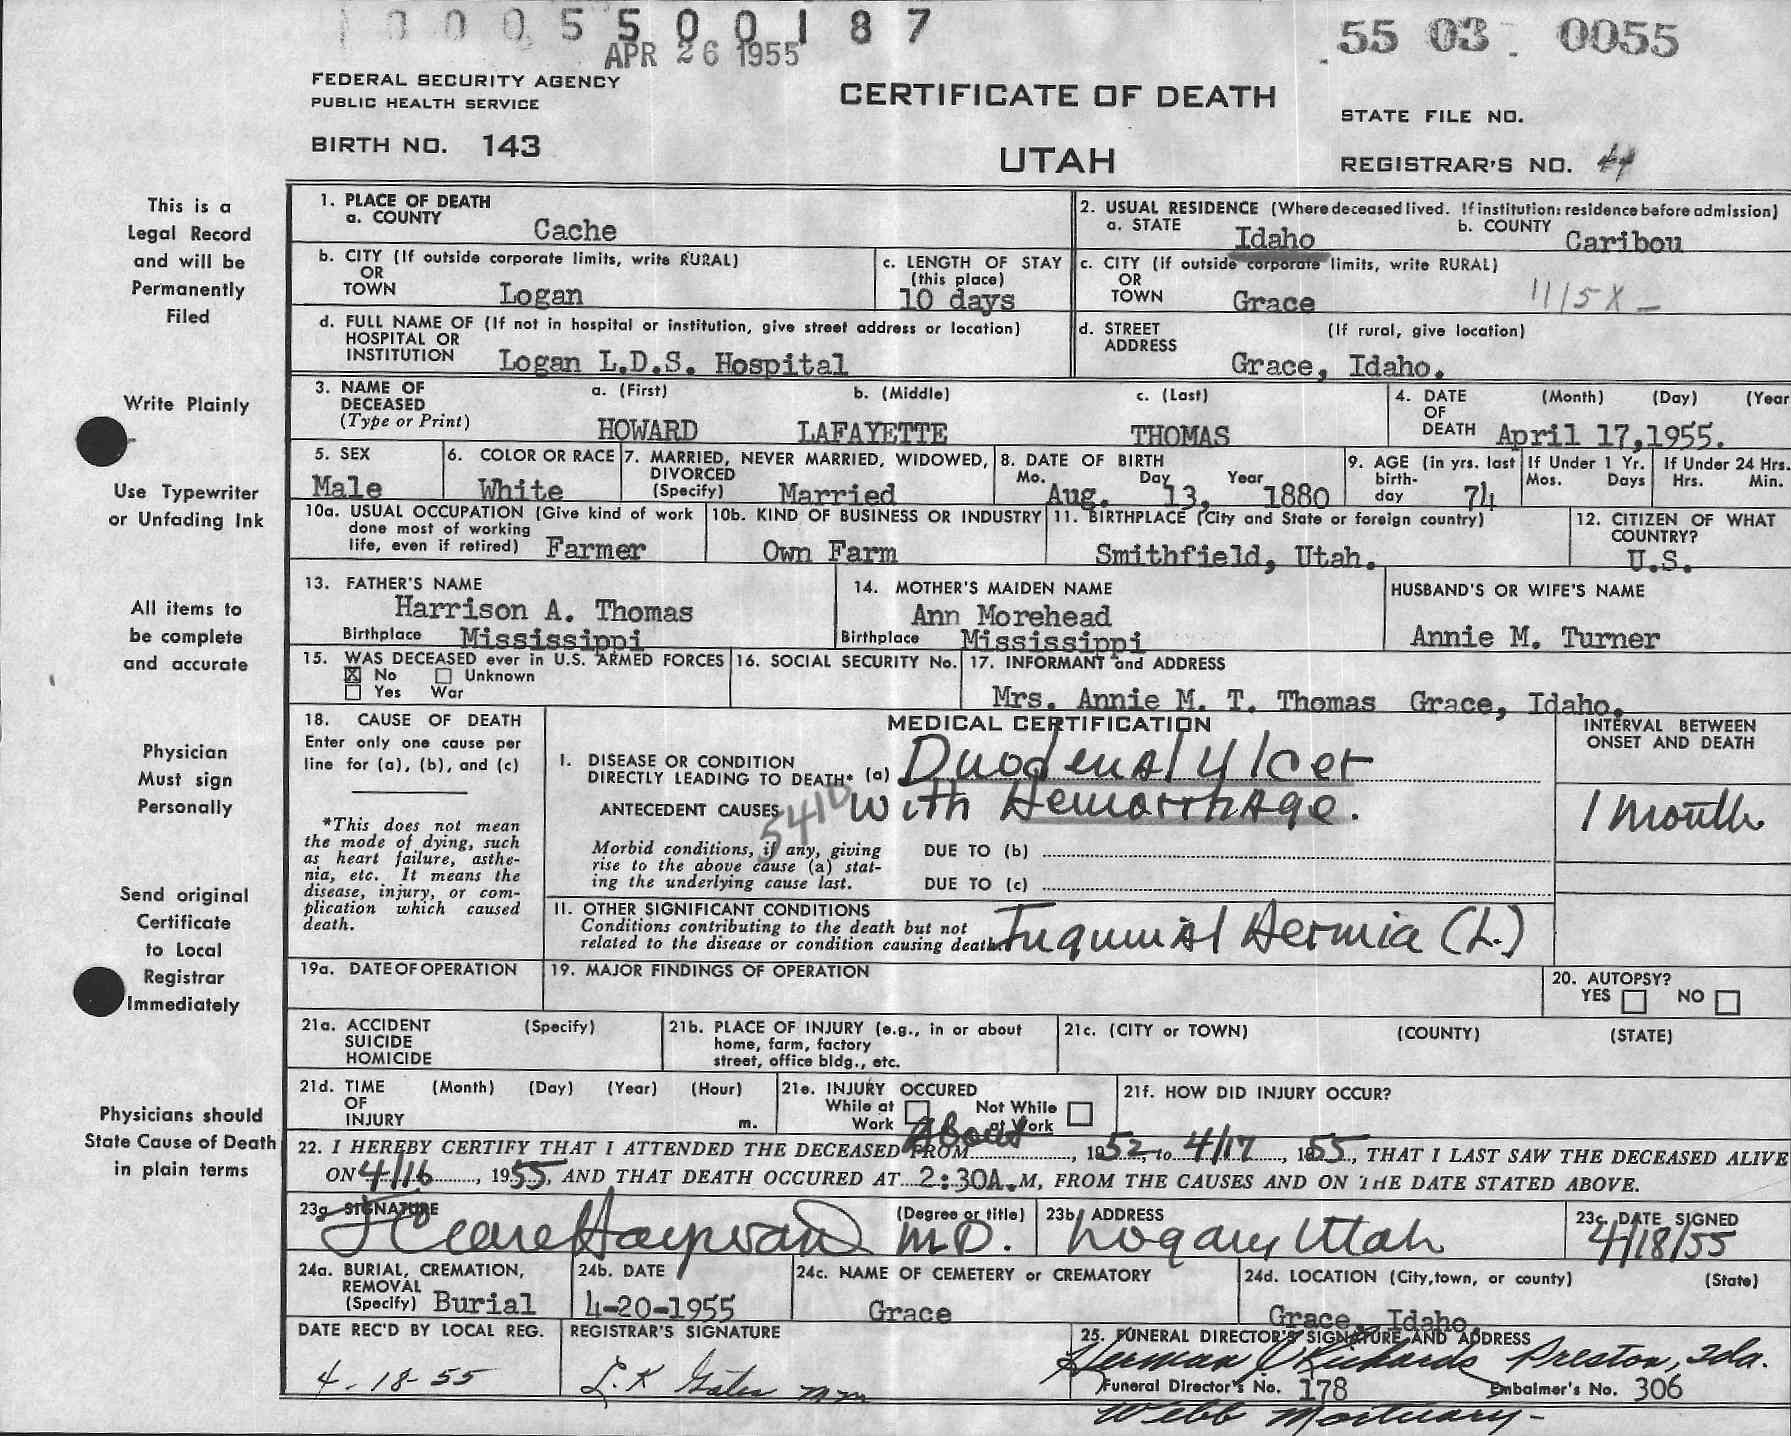 1 0 0 0 5 5 0 0 1 8 7
APR 26 1955
55 03 0055
FEDERAL SECURITY AGENCY
PUBLIC HEALTH SERVICE
CERTIFICATE OF DEATH
STATE FILE NO.
BIRTH NO. 143
UTAH
REGISTRAR'S NO. 44
This is a
Legal Record
and will be
Permanently
Filed
Write Plainly
Use Typewriter
or Unfading Ink
All items to
be complete
and accurate
Physician
Must sign
Personally
Send original
Certificate
to Local
Registrar
Immediately
Physicians should
State Cause of Death
in plain terms
1. PLACE OF DEATH
a. COUNTY Cache
2. USUAL RESIDENCE (Where deceased lived. If institution: residence before admission)
a. STATE Idaho b. COUNTY Caribou
b. CITY (If outside corporate limits, write RURAL)
OR
TOWN Logan
c. LENGTH OF STAY
(this place)
10 days
c. CITY (If outside corporate limits, write RURAL)
OR
TOWN Grace
1115X-
d. FULL NAME OF (If not in hospital or institution, give street address or location)
HOSPITAL OR
INSTITUTION Logan L.D.S. Hospital
d. STREET (If rural, give location)
ADDRESS
Grace, Idaho.
3. NAME OF a. (First) b. (Middle) c. (Last)
DECEASED
(Type or Print) HOWARD LAFAYETTE THOMAS
4. DATE (Month) (Day) (Year
OF
DEATH April 17,1955.
5. SEX
Male
6. COLOR OR RACE
White
7. MARRIED, NEVER MARRIED, WIDOWED,
DIVORCED
(Specify) Married
8. DATE OF BIRTH
Mo. Day Year
Aug. 13, 1880
9. AGE (in yrs. last
birth-
day 74
If Under 1 Yr.
Mos. Days
If Under 24 Hrs.
Hrs. Min.
10a. USUAL OCCUPATION (Give kind of work
done most of working
life, even if retired) Farmer
10b. KIND OF BUSINESS OR INDUSTRY
Own Farm
11. BIRTHPLACE (City and State or foreign country)
Smithfield, Utah.
12. CITIZEN OF WHAT
COUNTRY?
U.S.
13. FATHER'S NAME
Harrison A. Thomas
Birthplace Mississippi
14. MOTHER'S MAIDEN NAME
Ann Morehead
Birthplace Mississippi
HUSBAND'S OR WIFE'S NAME
Annie M. Turner
15. WAS DECEASED ever in U.S. ARMED FORCES
X No Unknown
Yes War
16. SOCIAL SECURITY No.
17. INFORMANT and ADDRESS
Mrs. Annie M. T. Thomas Grace, Idaho.
18. CAUSE OF DEATH
Enter only one cause per
line for (a), (b), and (c)
*This does not mean
the mode of dying, such
as heart failure, asthe-
nia, etc. It means the
disease, injury, or com-
plication which caused
death.
MEDICAL CERTIFICATION
INTERVAL BETWEEN
ONSET AND DEATH
I. DISEASE OR CONDITION
DIRECTLY LEADING TO DEATH* (a) Duodenal Ulcer
ANTECEDENT CAUSES with Hemorrhage.
5410
1 month
Morbid conditions, if any, giving
rise to the above cause (a) stat-
ing the underlying cause last.
DUE TO (b)
DUE TO (c)
II. OTHER SIGNIFICANT CONDITIONS
Conditions contributing to the death but not
related to the disease or condition causing death.
Inguinal Hernia (L.)
19a. DATE OF OPERATION
19. MAJOR FINDINGS OF OPERATION
20. AUTOPSY?
YES NO
21a. ACCIDENT (Specify)
SUICIDE
HOMICIDE
21b. PLACE OF INJURY (e.g., in or about
home, farm, factory
street, office bldg., etc.
21c. (CITY or TOWN) (COUNTY) (STATE)
21d. TIME (Month) (Day) (Year) (Hour)
OF
INJURY m.
21e. INJURY OCCURED
While at Not While
Work at Work
21f. HOW DID INJURY OCCUR?
22. I HEREBY CERTIFY THAT I ATTENDED THE DECEASED FROM about, 1952, to 4/17, 1955, THAT I LAST SAW THE DECEASED ALIVE
ON 4/16, 1955, AND THAT DEATH OCCURED AT 2:30A.M, FROM THE CAUSES AND ON THE DATE STATED ABOVE.
23a SIGNATURE (Degree or title)
Hayward M.D.
23b. ADDRESS
Logan, Utah
23c. DATE SIGNED
4/18/55
24a. BURIAL, CREMATION,
REMOVAL
(Specify) Burial
24b. DATE
4-20-1955
24c. NAME OF CEMETERY or CREMATORY
Grace
24d. LOCATION (City,town, or county) (State)
Grace, Idaho.
DATE REC'D BY LOCAL REG.
4-18-55
REGISTRAR'S SIGNATURE
L.K Gates mm
25. FUNERAL DIRECTOR'S SIGNATURE AND ADDRESS
Herman J Richards Preston, Ida.
Funeral Director's No. 178 Embalmer's No. 306
Webb Mortuary-